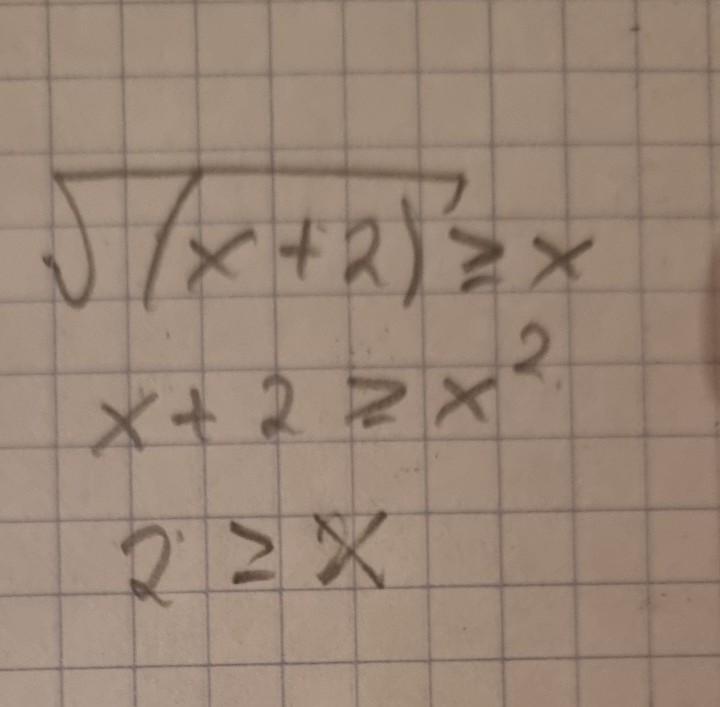 √(x+2) ≥ x
x + 2 ≥ x²
2 ≥ x